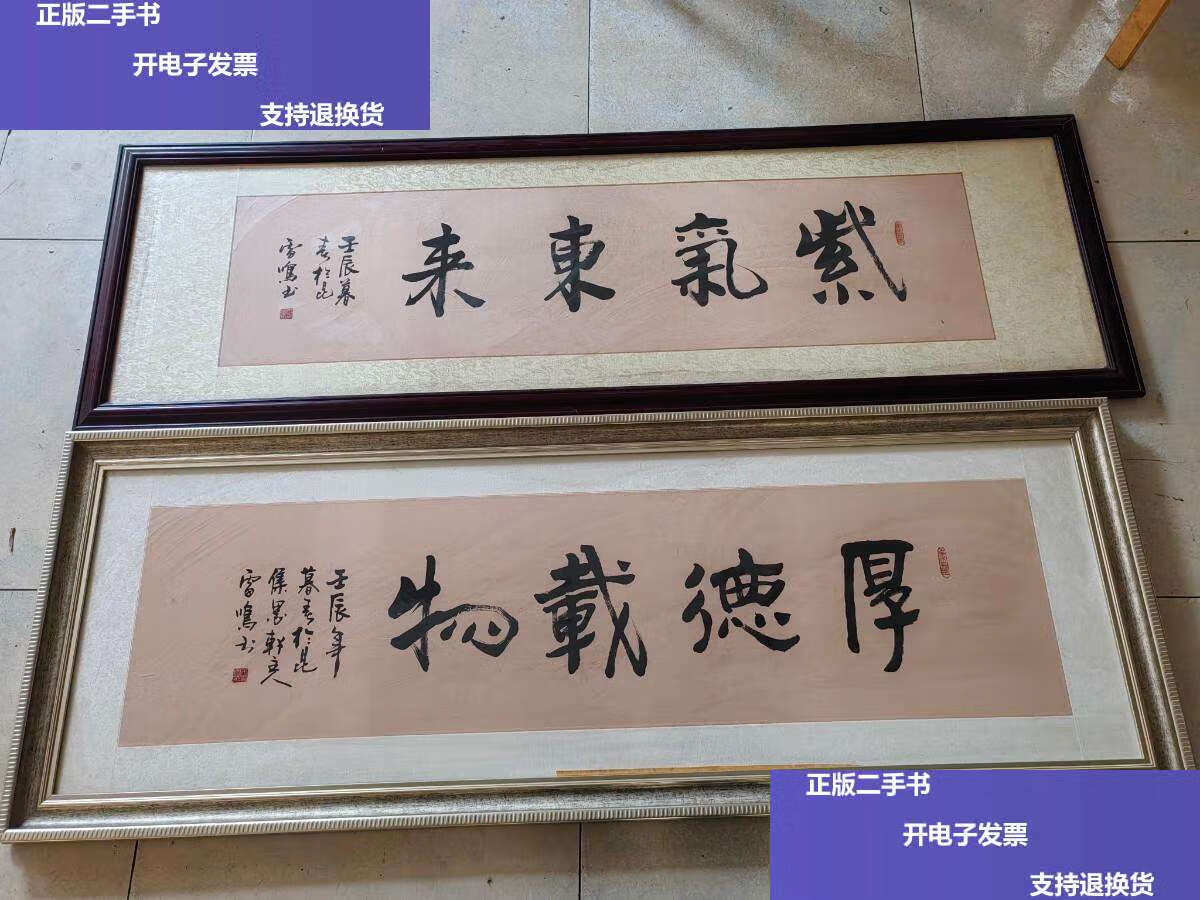 正版二手书
开电子发票
支持退换货
紫氣東来
壬辰暮
春於昆
雷鳴书
厚德載物
壬辰年
暮春於昆
集墨軒主人
雷鳴书
正版二手书
开电子发票
支持退换货